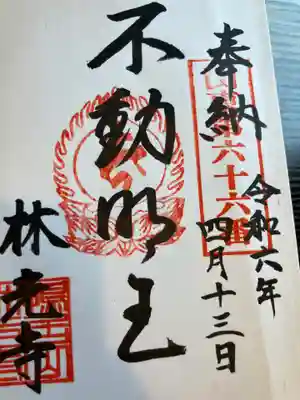 奉納
令和六年
四月十三日
不動明王
林光寺